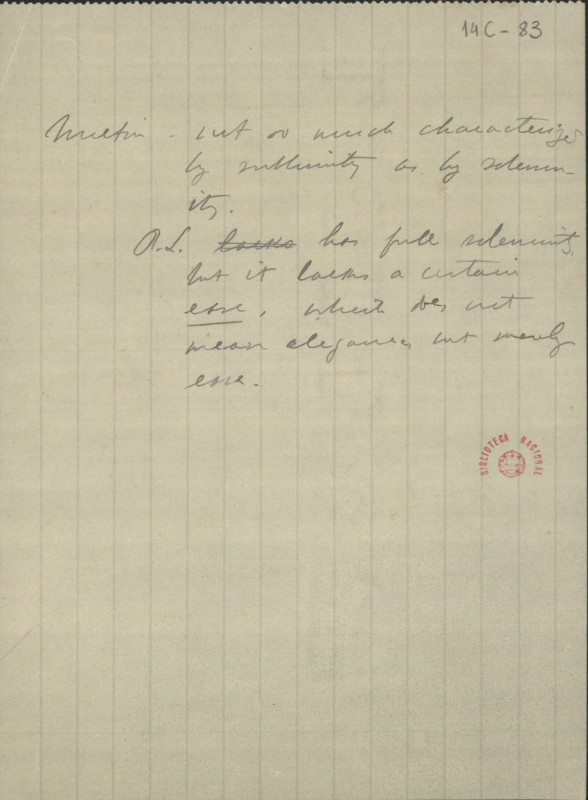 14C - 83
Milton - not so much characterized
by sublimity as by solemn-
ity.
P.L. lacks has full solemnity,
but it lacks a certain
ease, which does not
mean elegance, but merely
ease.
BIBLIOTECA NACIONAL